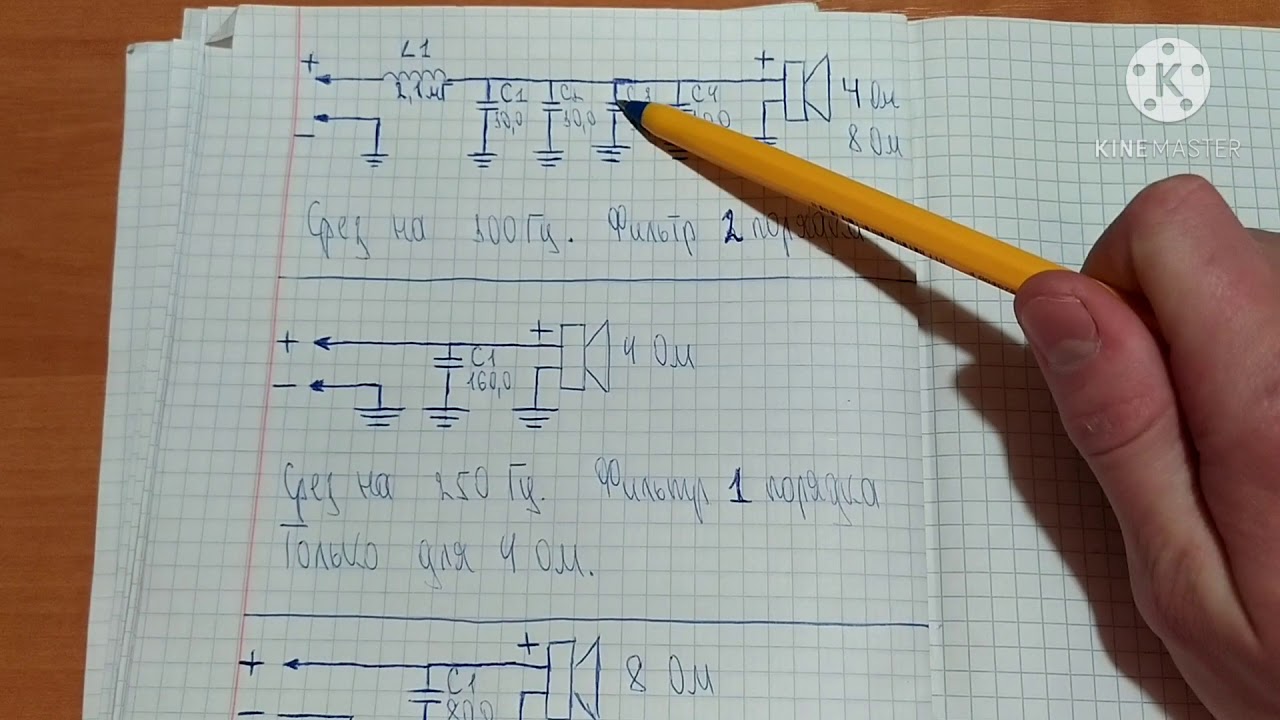 L1
+
2,1мГ
C1
10,0
10,0
C4
+
4 Ом
8 Ом
−
KINEMASTER
Срез на 100 Гц. Фильтр 2 порядка
+
+
C1
160,0
4 Ом
−
Срез на 250 Гц. Фильтр 1 порядка
Только для 4 Ом.
+
+
C1
8 Ом
−